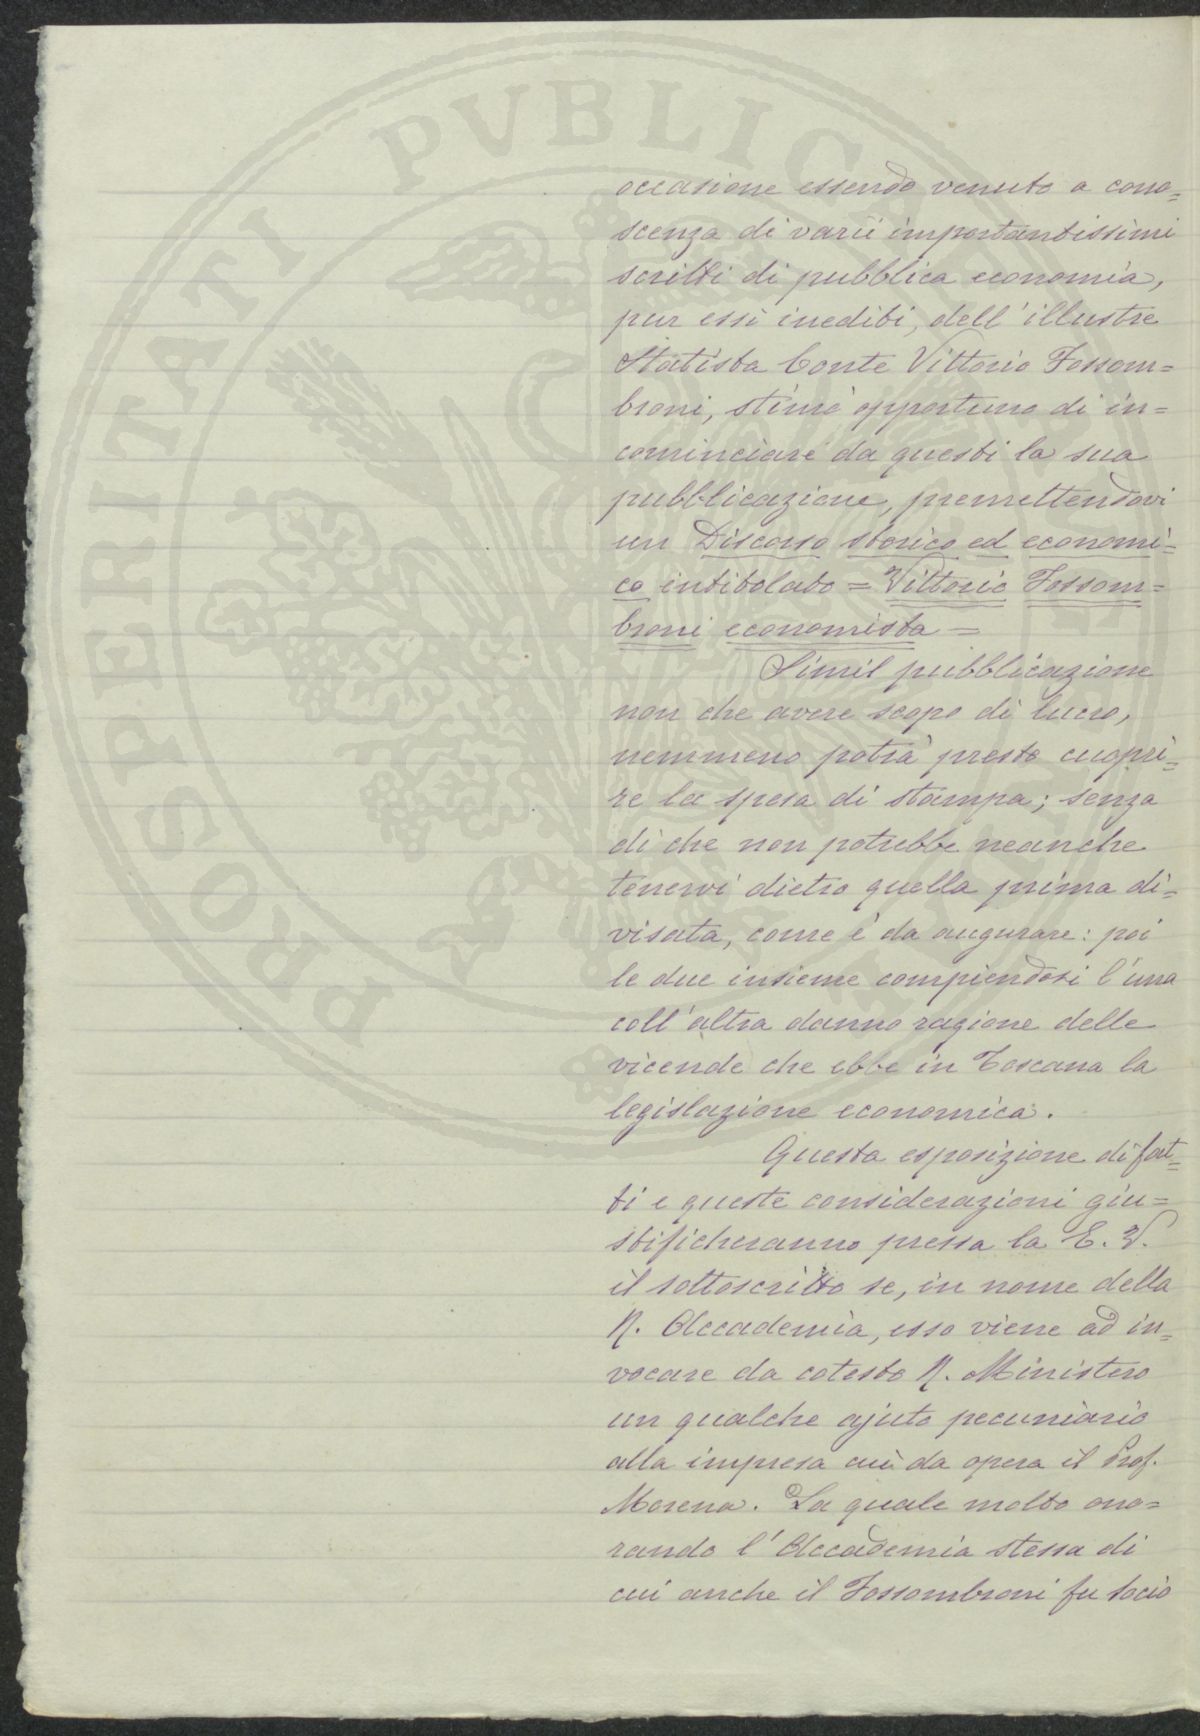 occasione essendo venuto a cono=
scenza di varii importantissimi
scritti di pubblica economia,
pur essi inediti, dell'illustre
Statista Conte Vittorio Fossom=
broni, stimò opportuno di in=
cominciare da questi la sua
pubblicazione, premettendovi
un Discorso storico ed economi=
co intitolato = Vittorio Fossom=
broni economista =
Simil pubblicazione
non che avere scopo di lucro,
nemmeno potrà presto cuopri=
re la spesa di stampa; senza
di che non potrebbe neanche
tenervi dietro quella prima di=
visata, come è da augurare: poi
le due insieme compiendosi l'una
coll'altra danno ragione delle
vicende che ebbe in Toscana la
legislazione economica.
Questa esposizione di fat=
ti e queste considerazioni giu=
stificheranno pressa la E. V.
il sottoscritto se, in nome della
R. Accademia, esso viene ad in=
vocare da cotesto R. Ministero
un qualche ajuto pecuniario
alla impresa cui da opera il Prof.
Morena. La quale molto ono=
rando l'Accademia stessa di
cui anche il Fossombroni fu socio
PROSPERITATI PVBLICAE